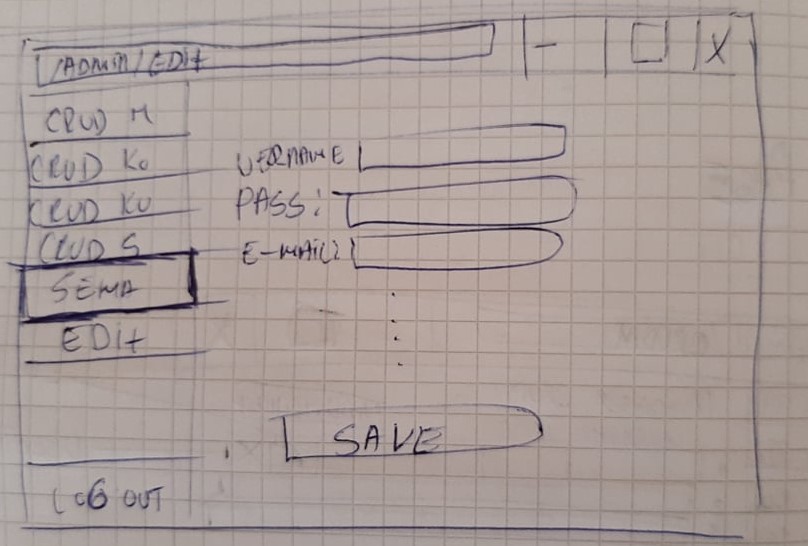 /ADMIN/EDIT
- X
CRUD M
CRUD Ko
CRUD KU
CRUD S
SEMA
EDIT
LOG OUT
USERNAME
PASS:
E-MAIL:
SAVE